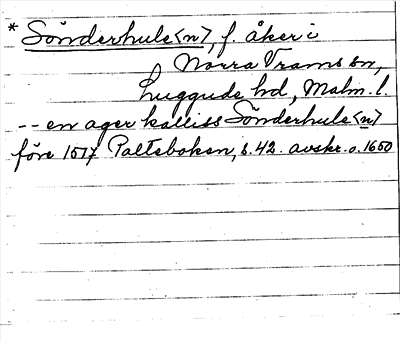 * Sönderhule<n>, f. åker i
Norra Vrams sn,
Luggude hd, Malm. l.
-- en ager kalliss Sönderhule<n>
före 1517 Palteboken, s. 42. avskr. o. 1650